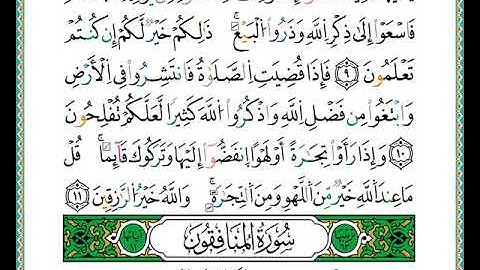 فَاسْعَوْا إِلَىٰ ذِكْرِ اللَّهِ وَذَرُوا الْبَيْعَ ۚ ذَٰلِكُمْ خَيْرٌ لَّكُمْ إِن كُنتُمْ
تَعْلَمُونَ ۝٩ فَإِذَا قُضِيَتِ الصَّلَوٰةُ فَانتَشِرُوا فِي الْأَرْضِ
وَابْتَغُوا مِن فَضْلِ اللَّهِ وَاذْكُرُوا اللَّهَ كَثِيرًا لَّعَلَّكُمْ تُفْلِحُونَ
۝١٠ وَإِذَا رَأَوْا تِجَارَةً أَوْ لَهْوًا انفَضُّوا إِلَيْهَا وَتَرَكُوكَ قَائِمًا ۚ قُلْ
مَا عِندَ اللَّهِ خَيْرٌ مِّنَ اللَّهْوِ وَمِنَ التِّجَارَةِ ۚ وَاللَّهُ خَيْرُ الرَّازِقِينَ ۝١١
سُورَةُ الْمُنَافِقُونَ